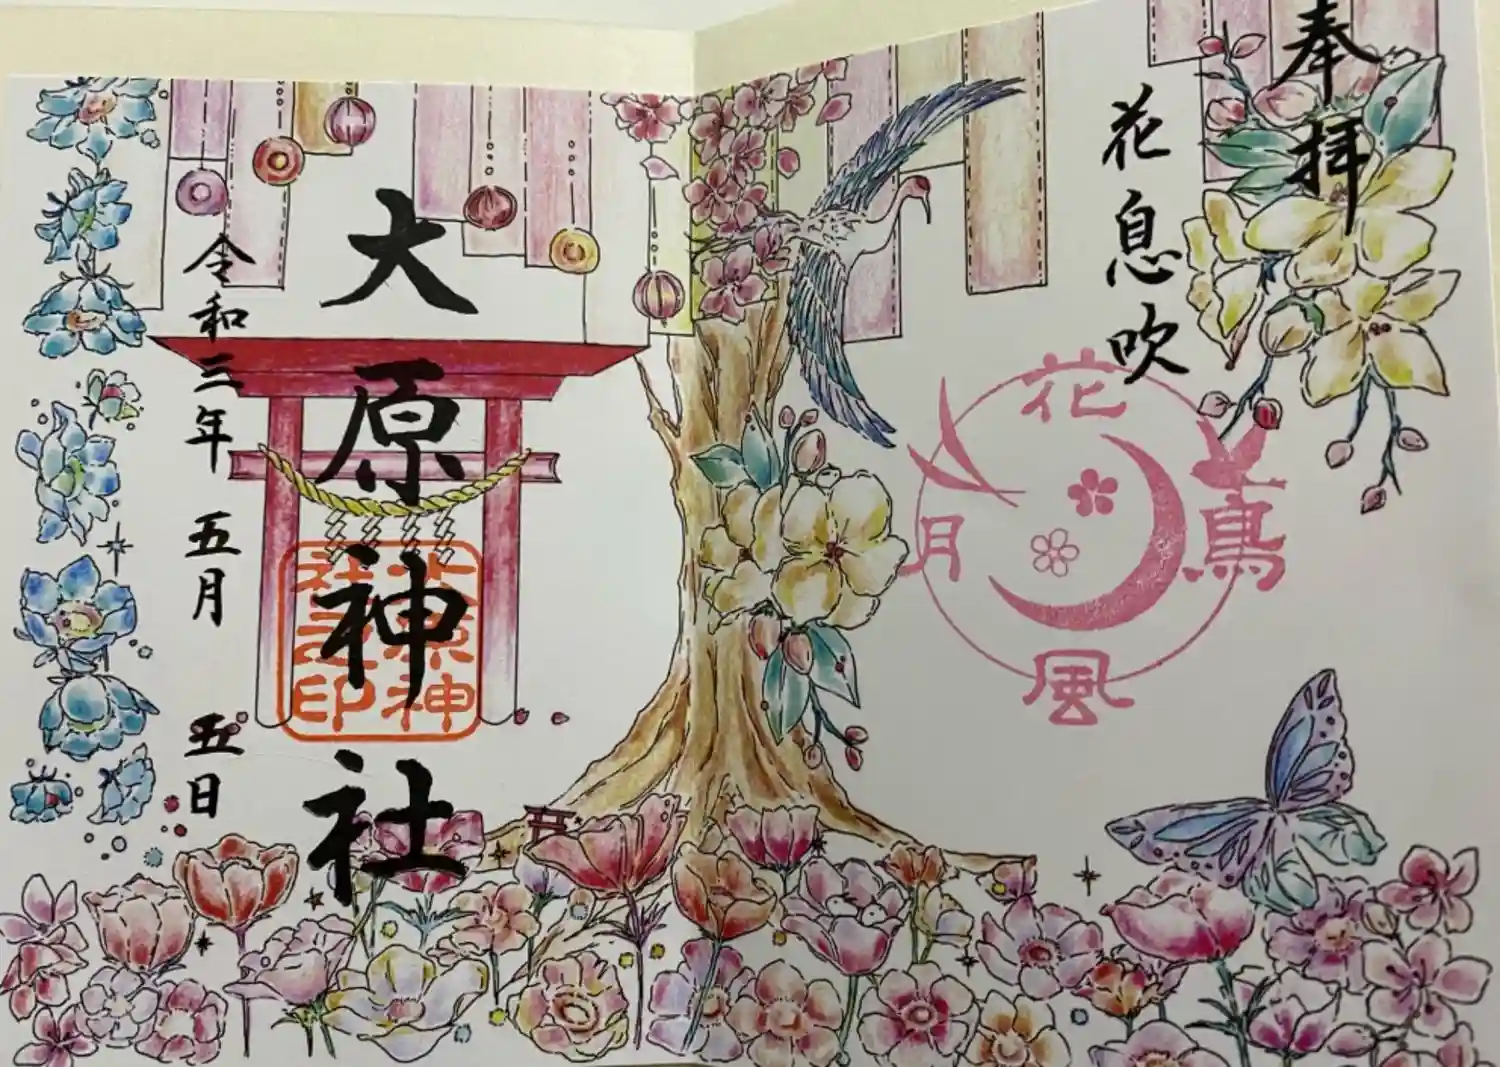 奉拝
花息吹
花鳥風月
大原神社
大原神社之印
令和三年 五月 五日